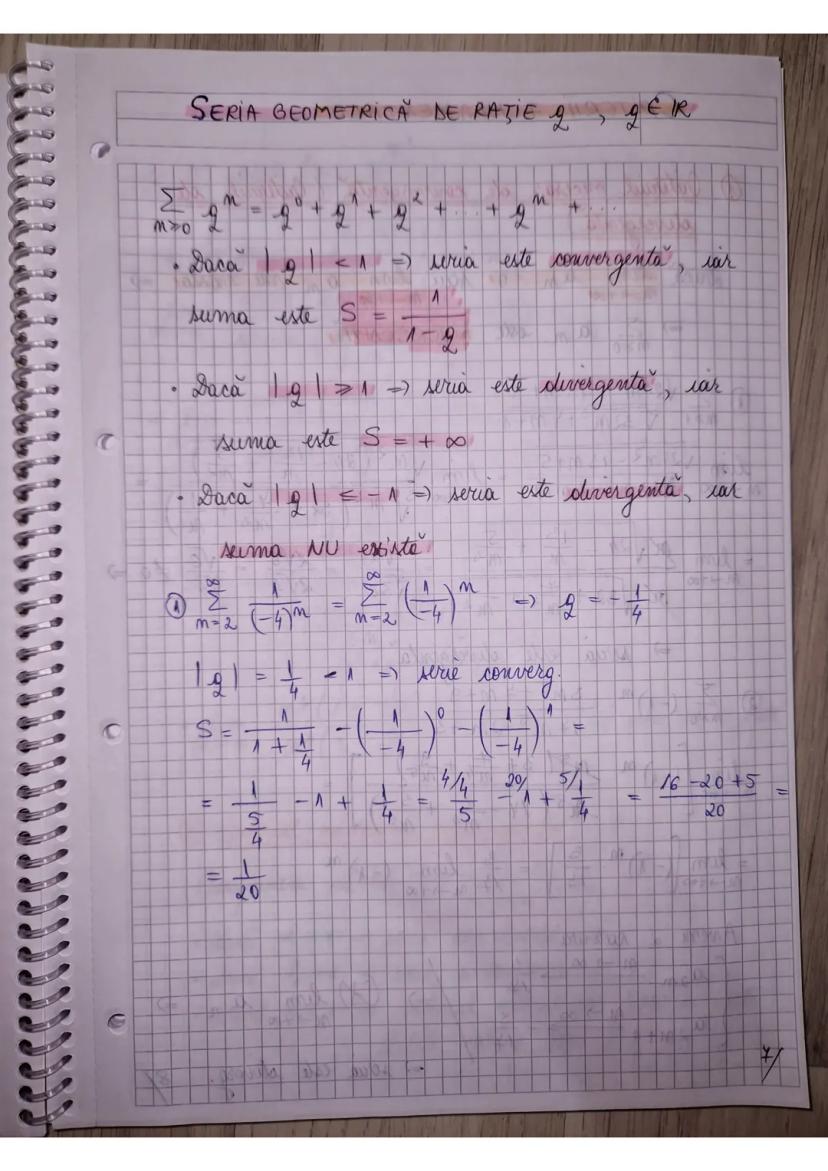 SERIA GEOMETRICĂ DE RAȚIE q , q ∈ ℝ
∑_{n≥0} q^n = q^0 + q^1 + q^2 + ... + q^n + ...
• Dacă |q| < 1 => seria este convergentă, iar
suma este S = 1/(1-q)
• Dacă |q| ≥ 1 => seria este divergentă, iar
suma este S = +∞
• Dacă |q| ≤ -1 => seria este divergentă, iar
suma NU există
① ∑_{n=2}^{∞} 1/(-4)^n = ∑_{n=2}^{∞} (1/-4)^n => q = -1/4
|q| = 1/4 < 1 => serie converg.
S = 1/(1 + 1/4) - (1/-4)^0 - (1/-4)^1 =
= 1/(5/4) - 1 + 1/4 = ⁴⁄4/5 - ²⁰⁄1 + ⁵⁄1/4 = (16 - 20 + 5)/20 =
= 1/20
7/